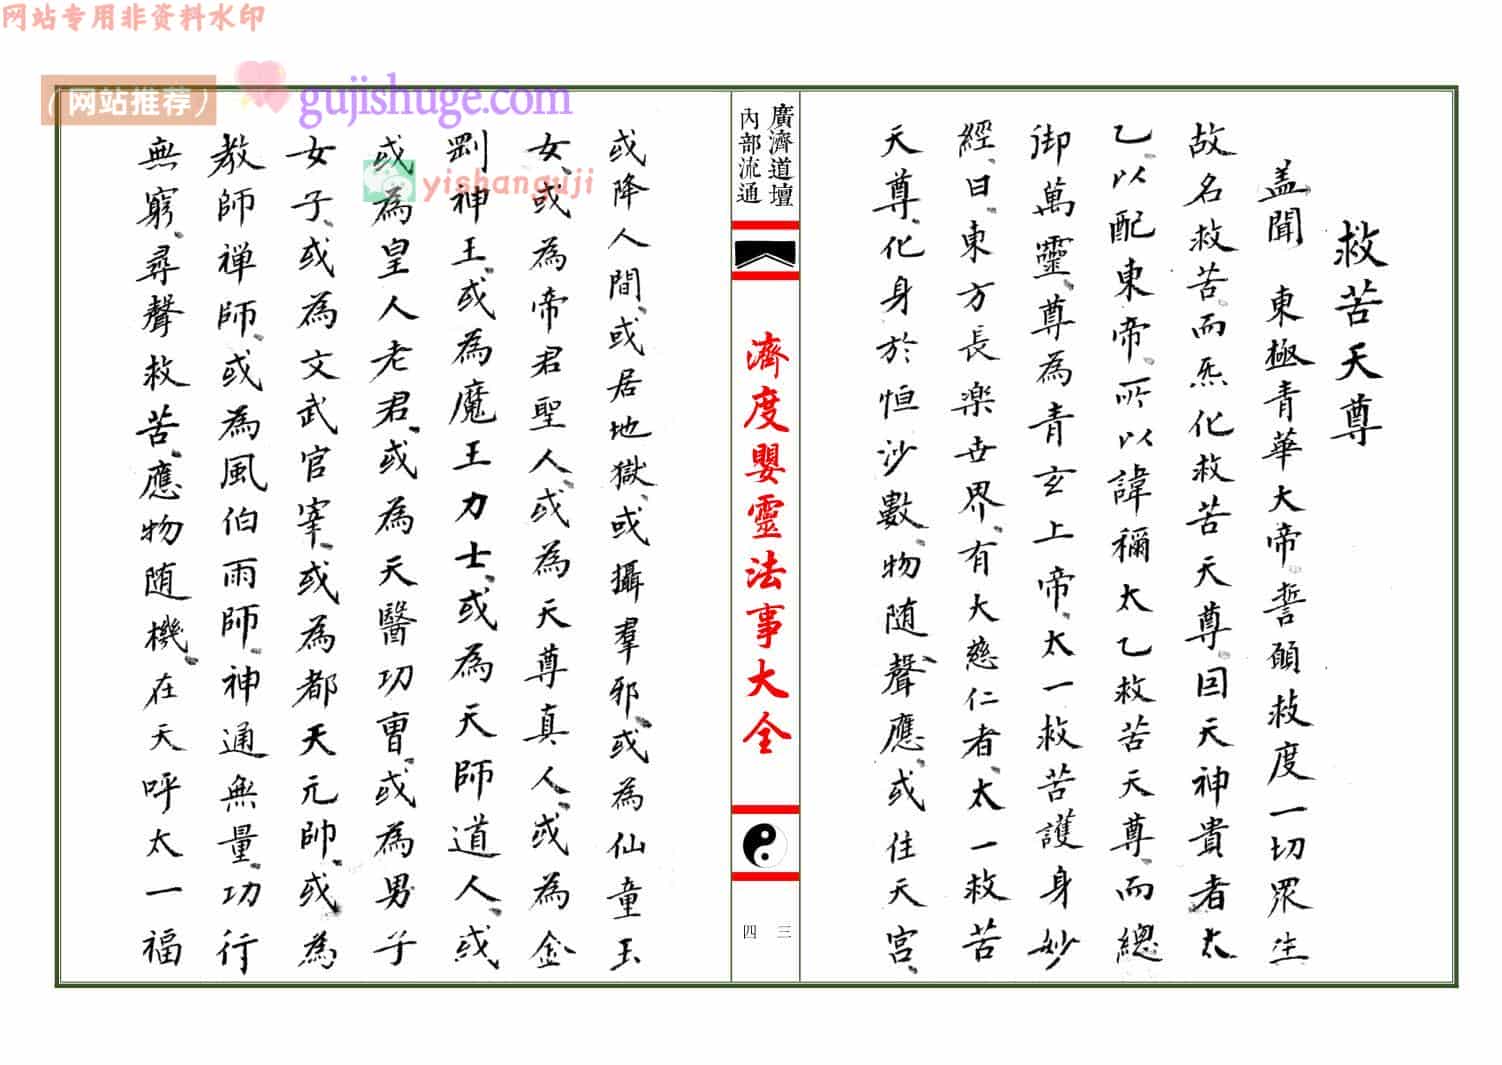 网站专用非资料水印
（网站推荐）
gujishuge.com
yishanguji
救苦天尊
盖聞　東極青華大帝、誓願救度一切眾生
故名救苦、而炁化救苦天尊、因天神貴者太
乙、以配東帝、所以諱稱太乙救苦天尊、而總
御萬靈、尊為青玄上帝、太一救苦護身妙
經、曰、東方長楽世界、有大慈仁者、太一救苦
天尊、化身於恒沙數、物随聲應、或住天宫、
廣濟道壇
內部流通
濟度嬰靈法事大全
三
四
或降人間、或居地獄、或攝羣邪、或為仙童玉
女、或為帝君聖人、或為天尊真人、或為金
剛神王、或為魔王力士、或為天師道人、或
或為皇人老君、或為天醫功曺、或為男子
女子、或為文武官宰、或為都天元帥、或為
教師禅師、或為風伯雨師、神通無量、功行
無窮、尋聲救苦、應物随機、在天呼太一福